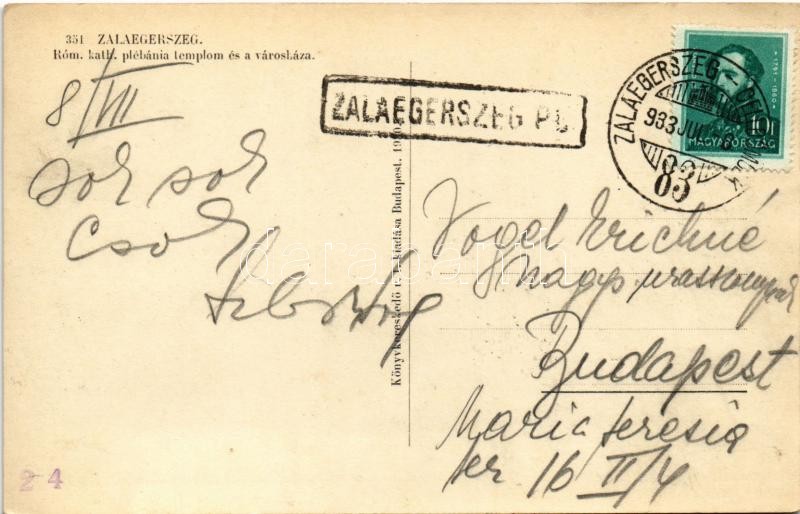 351 ZALAEGERSZEG.
Róm. kath. plébánia templom és a városháza.
8/VII
sok sok
csók
ZALAEGERSZEG P.U.
ZALAEGERSZEG
933 JUL
83
1791-1860
10f
MAGYARORSZÁG
Könyvkereskedő kiadása Budapest.
Vogel Erichné
nagys.
Budapest
Maria Teresia
ter 16 II/4
24
darabanth